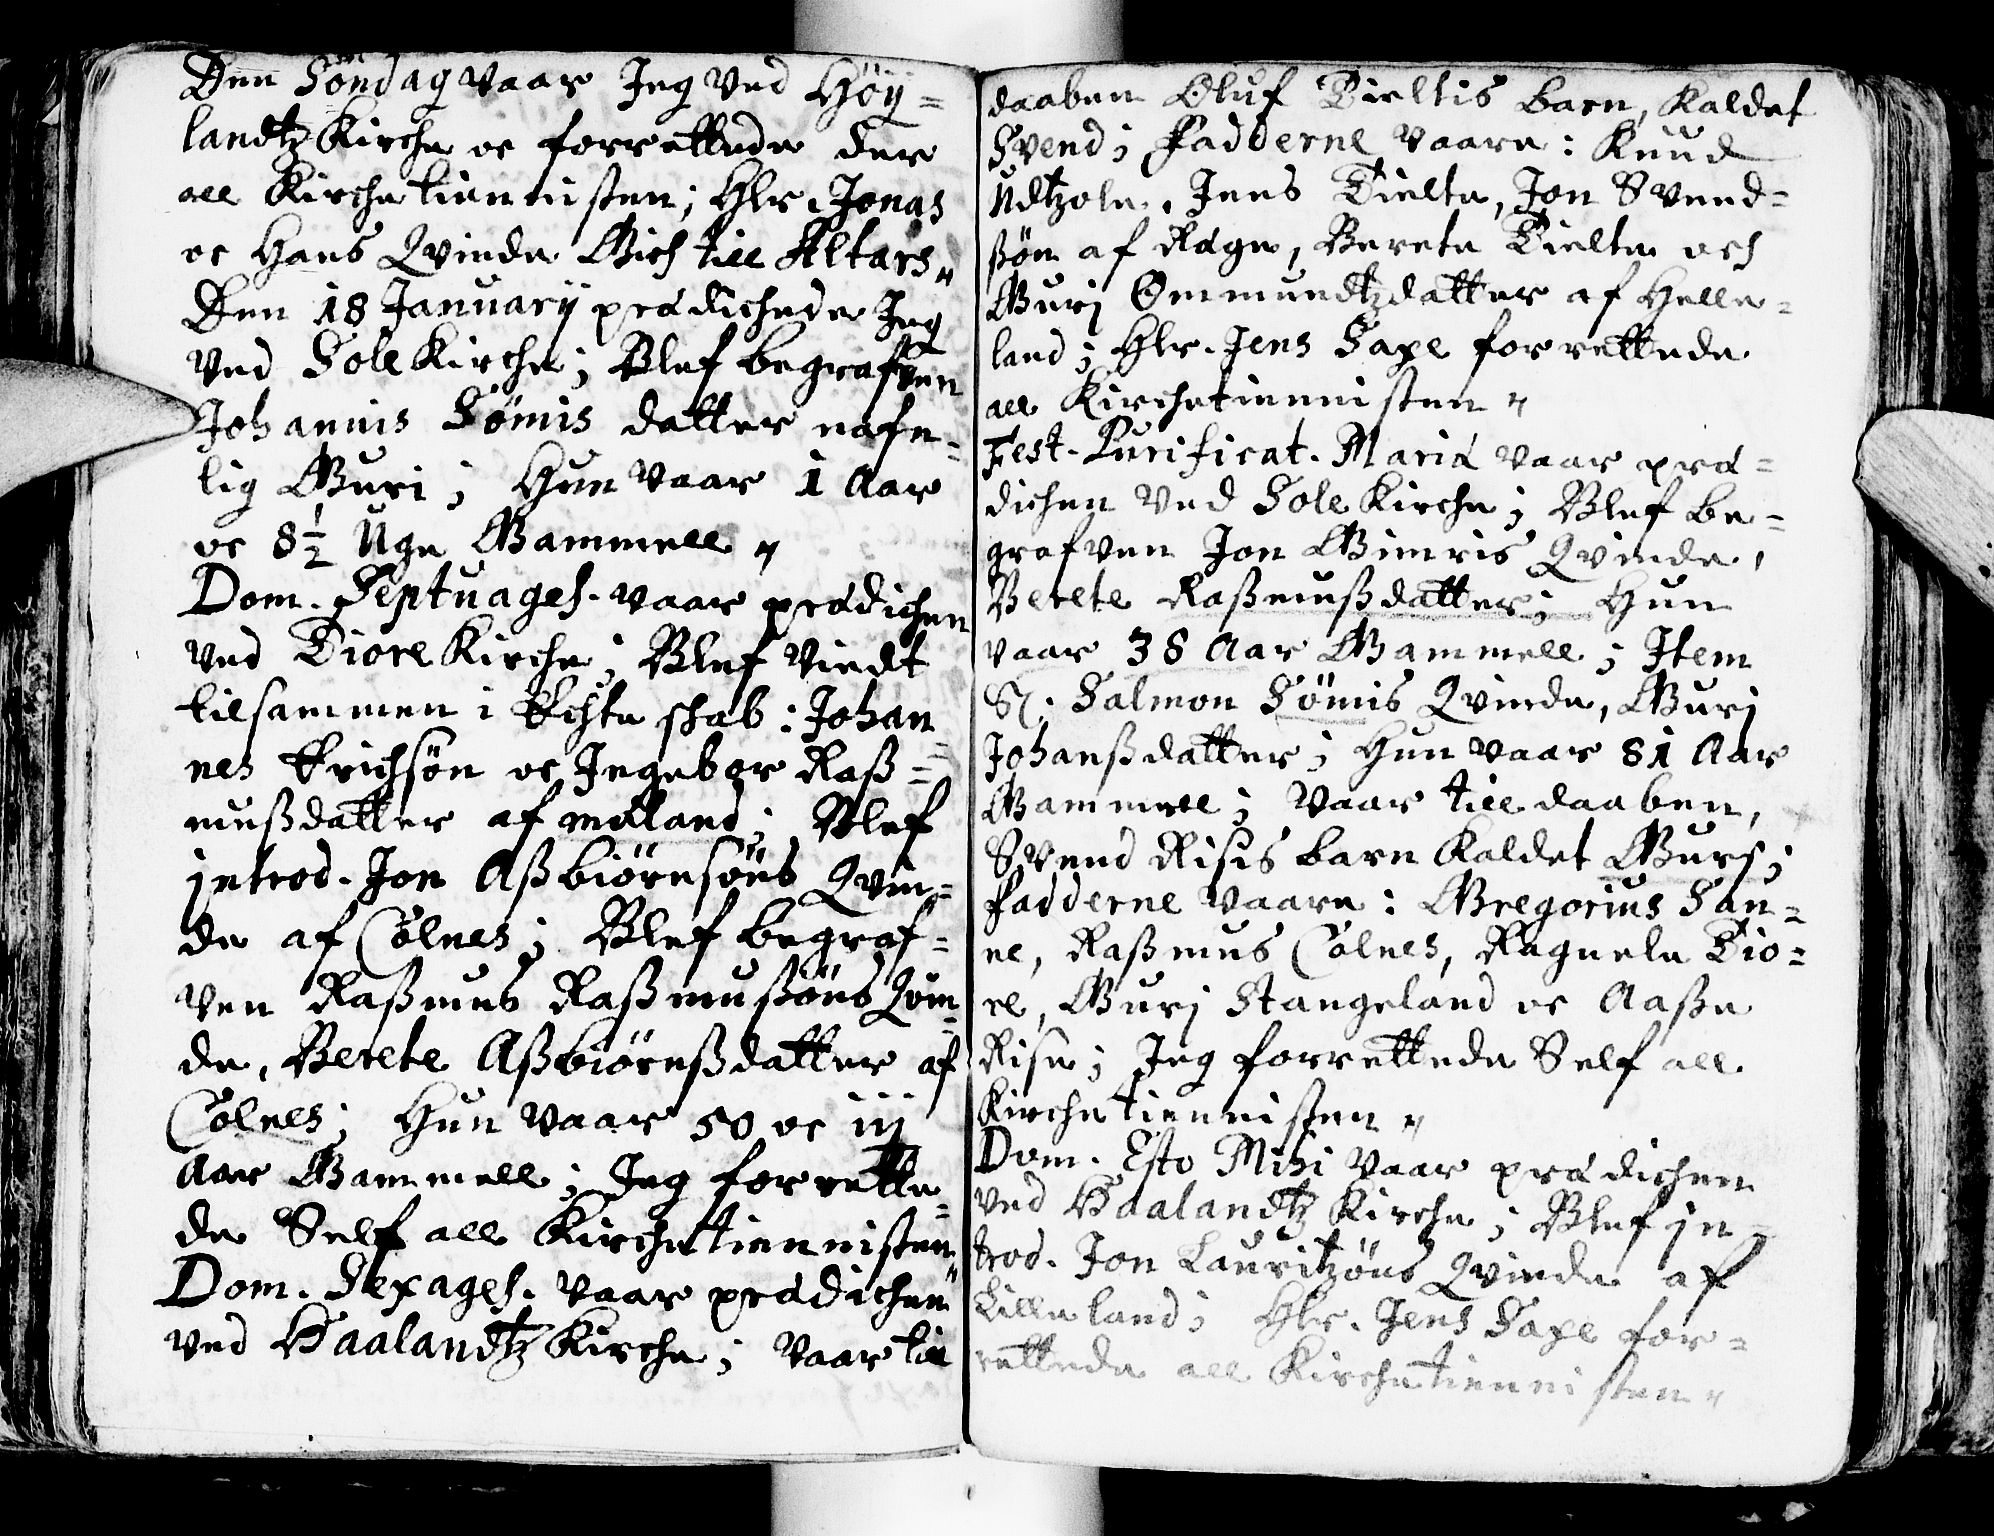 Den Søndag vaar Jeg ved Høÿ=
landtz Kirche oc forrettede der
all Kirchetiennisten; Hlr. Jonas
oc Hans Qvinde Gich till Altars„
Den 18 Januarij prædichede Jeg
ved Sole Kirche; Blef begrafven
Johannis Sømis datter nafn=
lig Guri; Hun vaar 1 Aar
oc 8½ Uge Gammell„
Dom. Septuages. vaar prædichen
ved Tiore Kirche; Blef viedt
tilsammen i Echte skab: Johan=
nes Erichsøn oc Ingebor Raß=
mußdatter af mæland; Blef
introd. Jon Aßbiørnsøns Qvin=
de af Cølnes; Blef begraf=
ven Raßmus Raßmußøns Qvin=
de, Berete Aßbiørnßdatter af
Cølnes; Hun vaar 50 oc iij
Aar Gammell; Jeg forrette=
de Self all Kirchetiennisten„
Dom. Sexages. vaar prædichen
ved Haalandtz Kirche; vaar till
daaben Oluf Tieltis barn, Kaldet
Svend; Fadderne vaare: Knud
Udtzole, Jens Tielte, Jon Svend=
ßøn af Ræge, Berete Tielte och
Guri Ommundtzdatter af Helle=
land; Hlr. Jens Saxe forrettede
all Kirchetiennisten„
Fest. Purificat. Mariæ vaar præ=
dichen ved Sole Kirche; Blef be=
grafven Jon Gimris Qvinde,
Berete Raßmußdatter; Hun
vaar 38 Aar Gammell; Item
Sl. Salmon Sømis Qvinde, Guri
Johanßdatter; Hun vaar 81 Aar
Gammell; vaar till daaben,
Svend Risis barn Kaldet Guri;
Fadderne vaare: Gregorius Sau=
ne, Raßmus Cølnes, Ragnele Tio=
re, Guri Stangeland oc Aaße
Rise; Jeg forrettede Self all
Kirchetiennisten„
Dom. Esto Mihi vaar prædichen
ved Haalandtz Kirche; Blef in=
trod. Jon Lauritzøns Qvinde af
Lilleland; Hlr. Jens Saxe for=
rettede all Kirchetiennisten„